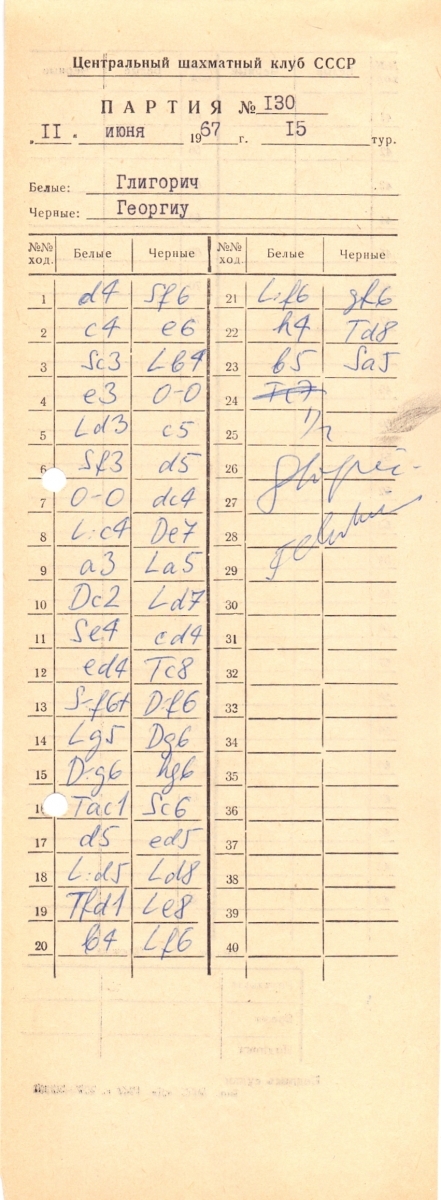 Центральный шахматный клуб СССР
ПАРТИЯ № I30
„II“ июня 1967 г. I5 тур.
Белые: Глигорич
Черные: Георгиу
№№ ход. Белые Черные №№ ход. Белые Черные
1 d4 Sf6 21 L:f6 gf6
2 c4 e6 22 h4 Td8
3 Sc3 Lb4 23 b5 Sa5
4 e3 0-0 24 Tc7
5 Ld3 c5 25 1/2
6 Sf3 d5 26
7 0-0 dc4 27
8 L:c4 De7 28
9 a3 La5 29
10 Dc2 Ld7 30
11 Se4 cd4 31
12 ed4 Tc8 32
13 S:f6+ D:f6 33
14 Lg5 Dg6 34
15 D:g6 hg6 35
16 Tac1 Sc6 36
17 d5 ed5 37
18 L:d5 Ld8 38
19 Tfd1 Le8 39
20 b4 Lf6 40